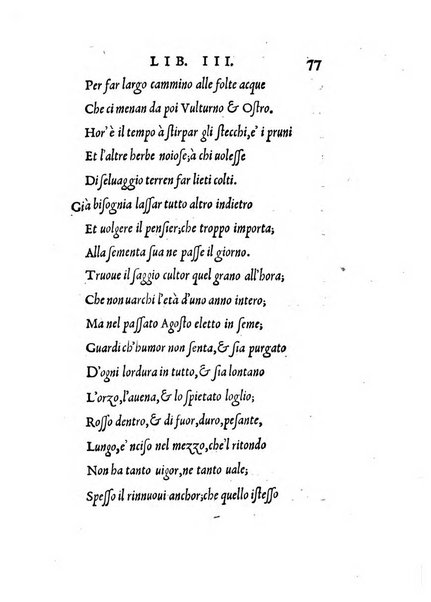 LIB. III. 77
Per far largo cammino alle folte acque
Che ci menan da poi Vulturno & Ostro.
Hor'è il tempo à stirpar gli stecchi, e' i pruni
Et l'altre herbe noiose; à chi uolesse
Di seluaggio terren far lieti colti.
Già bisognia lassar tutto altro indietro
Et uolgere il pensier; che troppo importa;
Alla sementa sua ne passe il giorno.
Truoue il saggio cultor quel grano all'hora;
Che non uarchi l'età d'uno anno intero;
Ma nel passato Agosto eletto in seme;
Guardi ch'humor non senta, & sia purgato
D'ogni lordura in tutto, & sia lontano
L'orzo, l'auena, & lo spietato loglio;
Rosso dentro, & di fuor, duro, pesante,
Lungo, e' nciso nel mezzo, che'l ritondo
Non ha tanto uigor, ne tanto uale;
Spesso il rinnuoui anchor; che quello istesso